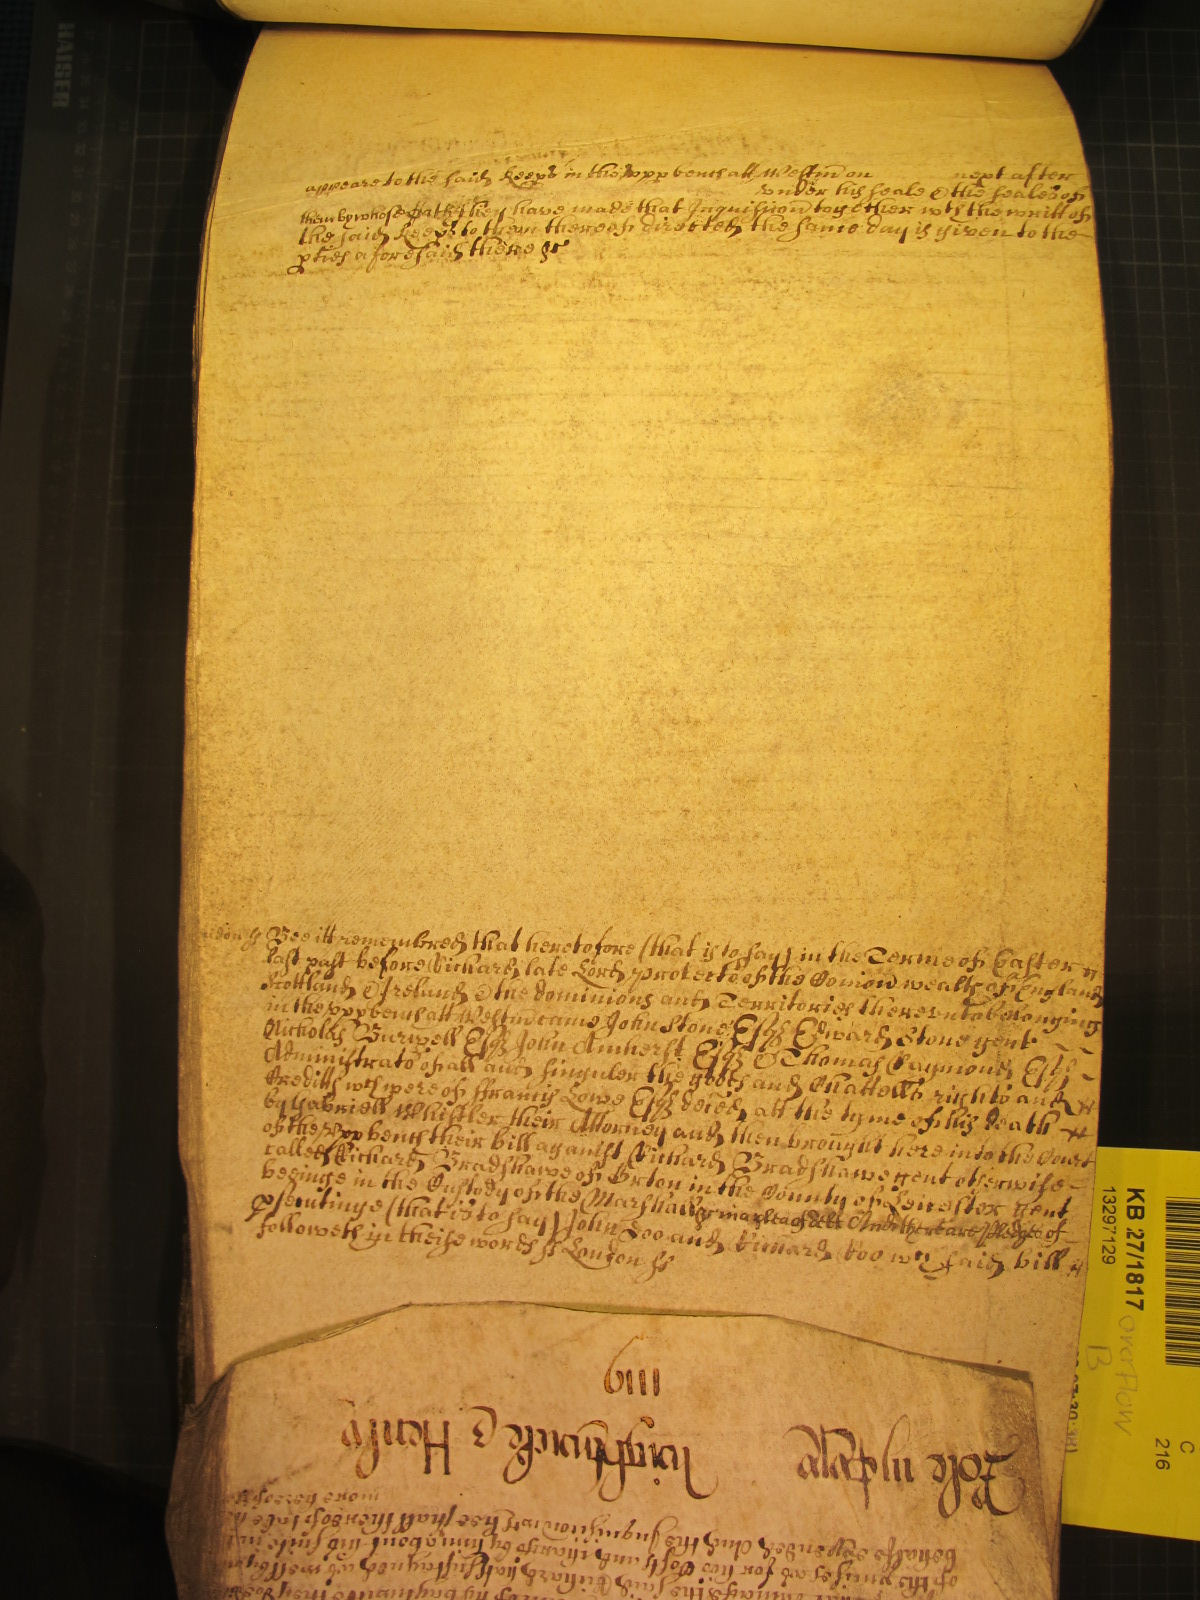 appeare to the said Keeps in the upp bench att Westm on next after
under his seale & the seales of
them by whose oath they have made that Inquisicon together wth the writt of
the said Keeps to them thereof directed the same day is given to the
pties aforesaid there &c
Bee itt remembred that heretofore (that is to say) in the Terme of Easter
last past before Richard late Lord protector of the Comon wealth of England
Scottland & Ireland & the dominions and Territories thereunto belonging
in the upp bench att Westm came John Stone Esqr Edward Stone gent
Nicholas Burwell Esqr John Amherst Esqr & Thomas Raymond Esqr
Administrators of all and singuler the goods and Chattells rights and
Creditts wch were of ffrancis Lowe Esqr deced att the tyme of his death
by Gabriell Whistler their Attorney and then brought here into the Court
of the upp bench their bill against Richard Bradshawe gent otherwise
called Richard Bradshawe of Orton in the County of Leicester gent
beeinge in the Custody of the Marshall &c in a plea of debt And there are pledges of
psecutinge (that is to say) John Doo and Richard Roo wch said bill
followeth in theise words ss London ss
1119
Henly
Role
more hereof
behalfe expended And the Inquisicon wch hee shall thereof take
of the pmisses as for his Costs and charges by him about his suite in
the said Richard hath susteyned as well by
KB 27/1817
13297129
overflow
B
C
216
HAISER